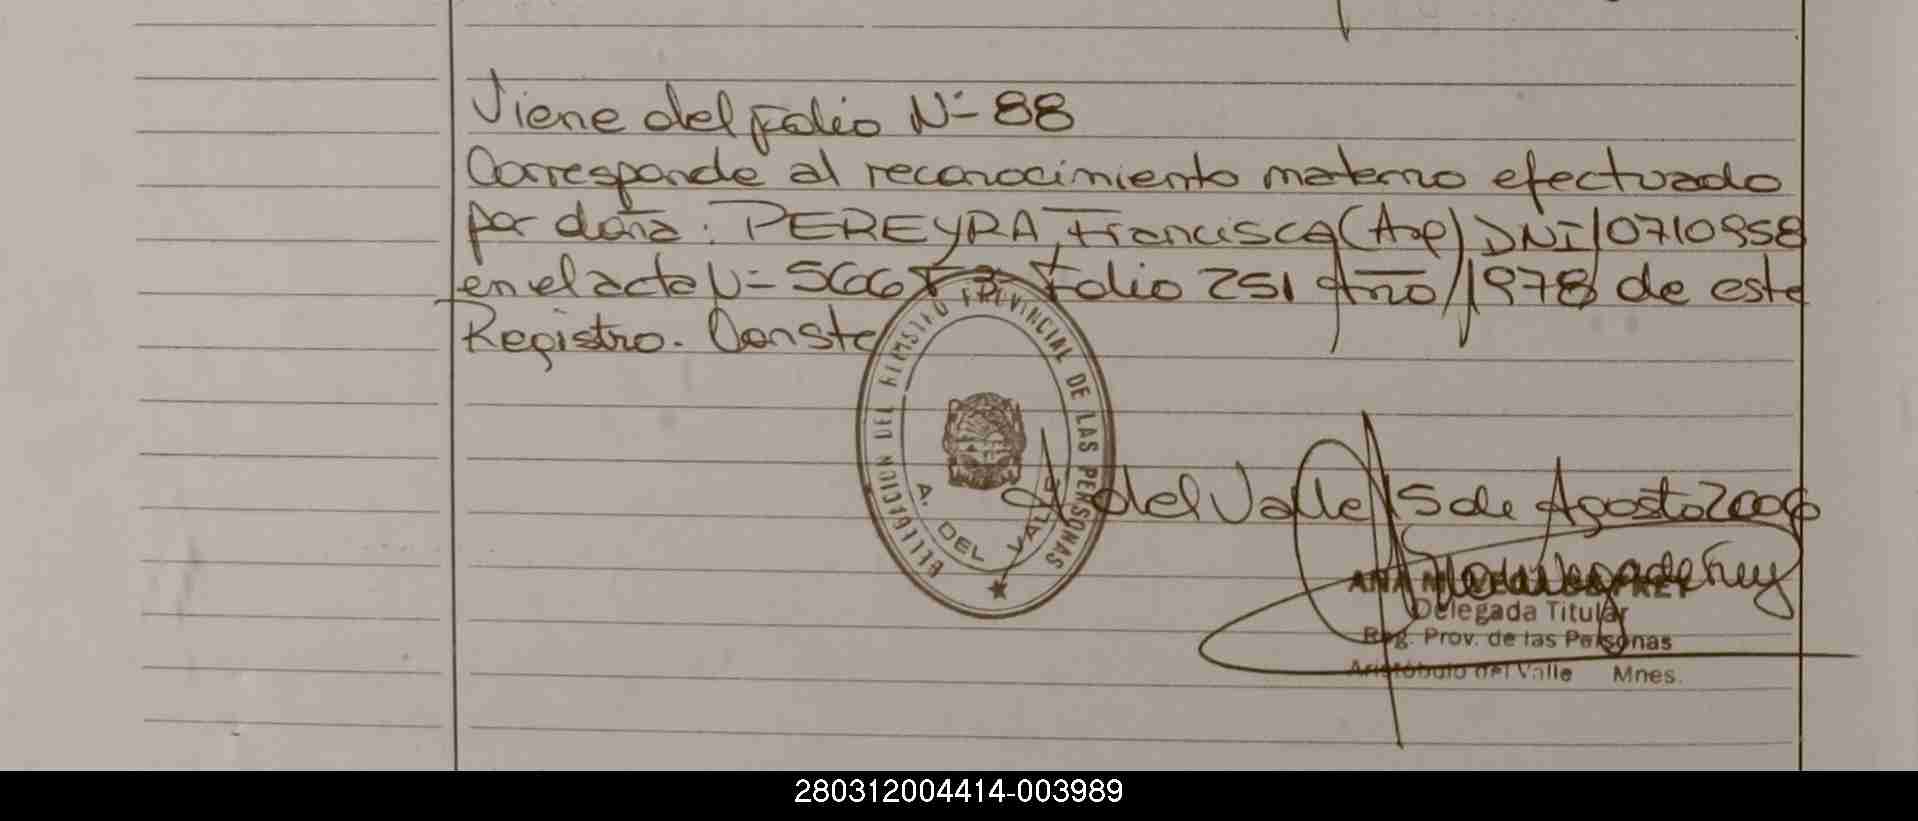 Viene del Folio Nº 88
Corresponde al reconocimiento materno efectuado
por doña: PEREYRA, Francisca (Arg) DNI 10710958
en el acta Nº 566 Tº 3º Folio 251 Año 1978 de este
Registro. Conste
DELEGACION DEL REGISTRO PROVINCIAL DE LAS PERSONAS
A. DEL VALLE
A del Valle 15 de Agosto 2006
ANA M. VEGA DE FREY
Delegada Titular
Reg. Prov. de las Personas
Aristóbulo del Valle Mnes.
280312004414-003989